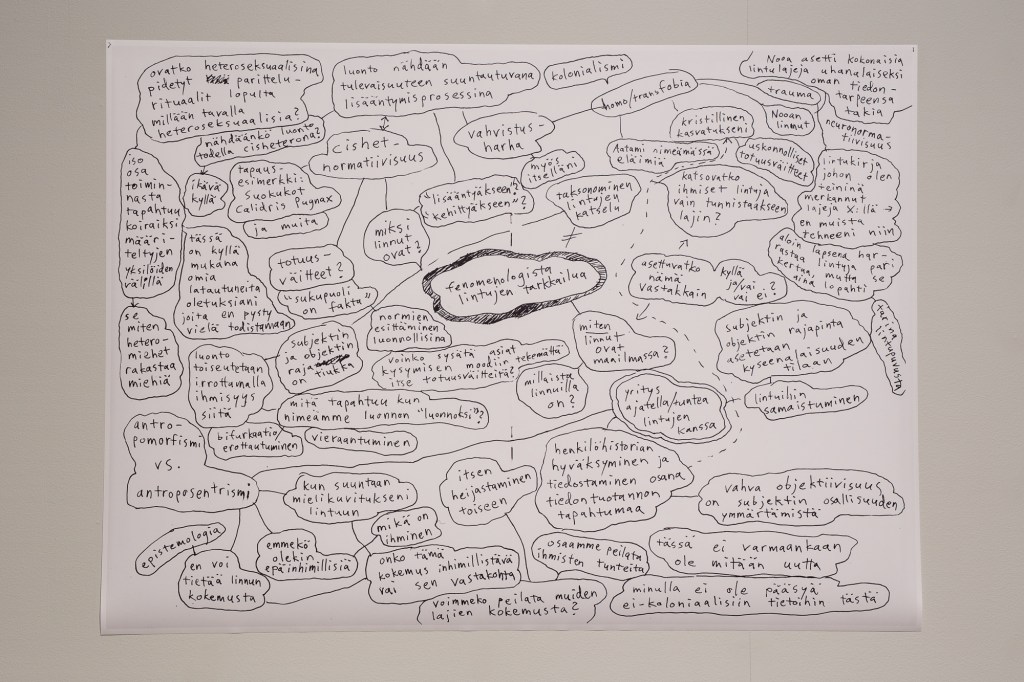 2
1
ovatko heteroseksuaalisina
pidetyt parittelu-
rituaalit lopulta
millään tavalla
heteroseksuaalisia?
nähdäänkö luonto
todella cisheterona?
ikävä
kyllä
luonto nähdään
tulevaisuuteen suuntautuvana
lisääntymisprosessina
kolonialismi
homo/transfobia
Nooa asetti kokonaisia
lintulajeja uhanulaiseksi
oman tiedon-
tarpeensa
takia
trauma
Nooan
linnut
neuronorma-
tiivisuus
kristillinen
kasvatukseni
uskonnolliset
totuusväitteet
Aatami nimeämässä
eläimiä
vahvistus-
harha
myös
itselläni
cishet-
normatiivisuus
tapaus-
esimerkki:
suokukot
Calidris Pugnax
ja muita
iso
osa
toimin-
nasta
tapahtuu
koiraiksi
määri-
teltyjen
yksilöiden
välillä
se
miten
hetero-
miehet
rakastaa
miehiä
tässä
on kyllä
mukana
omia
latautuneita
oletuksiani
joita en pysty
vielä todistamaan
totuus-
väitteet?
"sukupuoli
on fakta"
miksi
linnut
ovat?
"lisääntyäkseen"?
"kehittyäkseen"?
taksonominen
lintujen
katselu
katsovatko
ihmiset lintuja
vain tunnistaakseen
lajin?
lintukirja
johon olen
teininä
merkannut
lajeja X:llä →
en muista
tehneeni niin
aloin lapsena har-
rastaa lintuja pari
kertaa, mutta se
aina lopahti
tarina
lintupuvusta
fenomenologista
lintujen tarkkailua
asettuvatko
nämä
vastakkain
kyllä
ja/vai
vai ei?
normien
esittäminen
luonnollisina
subjektin
ja objektin
raja
on tiukka
luonto
toiseutetaan
irrottamalla
ihmisyys
siitä
voinko sysätä asiat
kysymisen moodiin tekemättä
itse totuusväitteitä?
mitä tapahtuu kun
nimeämme luonnon "luonnoksi"?
millaista
linnuilla
on?
miten
linnut
ovat
maailmassa?
subjektin ja
objektin rajapinta
asetetaan
kyseenalaisuuden
tilaan
yritys
ajatella/tuntea
lintujen
kanssa
lintuihin
samaistuminen
antro-
pomorfismi
vs.
antroposentrismi
bifurkaatio/
erottautuminen
vieraantuminen
kun suuntaan
mielikuvitukseni
lintuun
itsen
heijastaminen
toiseen
henkilöhistorian
hyväksyminen ja
tiedostaminen osana
tiedontuotannon
tapahtumaa
vahva objektiivisuus
on subjektin osallisuuden
ymmärtämistä
epistemologia
en voi
tietää linnun
kokemusta
emmekö
olekin
epäinhimillisiä
mikä on
ihminen
onko tämä
kokemus inhimillistävä
vai sen vastakohta
osaamme peilata
ihmisten tunteita
voimmeko peilata muiden
lajien kokemusta?
tässä ei varmaankaan
ole mitään uutta
minulla ei ole pääsyä
ei-koloniaalisiin tietoihin tästä